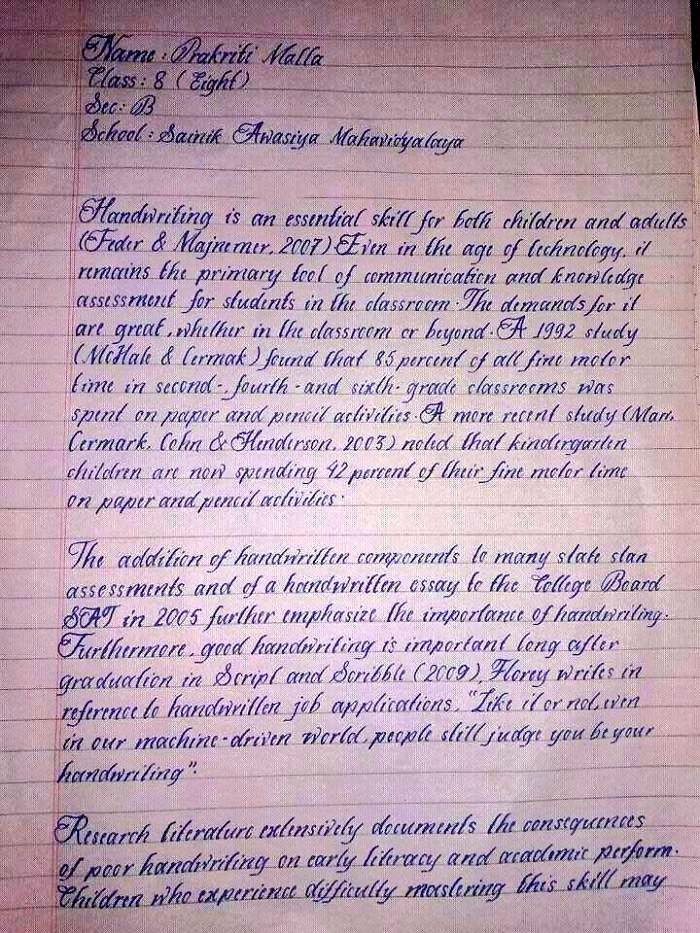 Name : Prakriti Malla
Class : 8 ( Eight )
Sec : B
School : Sainik Awasiya Mahavidyalaya
Handwriting is an essential skill for both children and adults
(Feder & Majnemer, 2007) Even in the age of technology, it
remains the primary tool of communication and knowledge
assessment for students in the classroom. The demands for it
are great, whether in the classroom or beyond. A 1992 study
(McHale & Cermak) found that 85 percent of all fine motor
time in second-, fourth - and sixth- grade classrooms was
spent on paper and pencil activities. A more recent study (Marr,
Cermark, Cohn & Henderson, 2003) noted that kindergarten
children are now spending 42 percent of their fine motor time
on paper and pencil activities.
The addition of handwritten components to many state stan
assessments and of a handwritten essay to the College Board
SAT in 2005 further emphasize the importance of handwriting.
Furthermore, good handwriting is important long after
graduation in Script and Scribble (2009), Florey writes in
reference to handwritten job applications, "Like it or not, even
in our machine-driven world, people still judge you be your
handwriting".
Research literature extensively documents the consequences
of poor handwriting on early literacy and academic perform.
Children who experience difficulty mastering this skill may